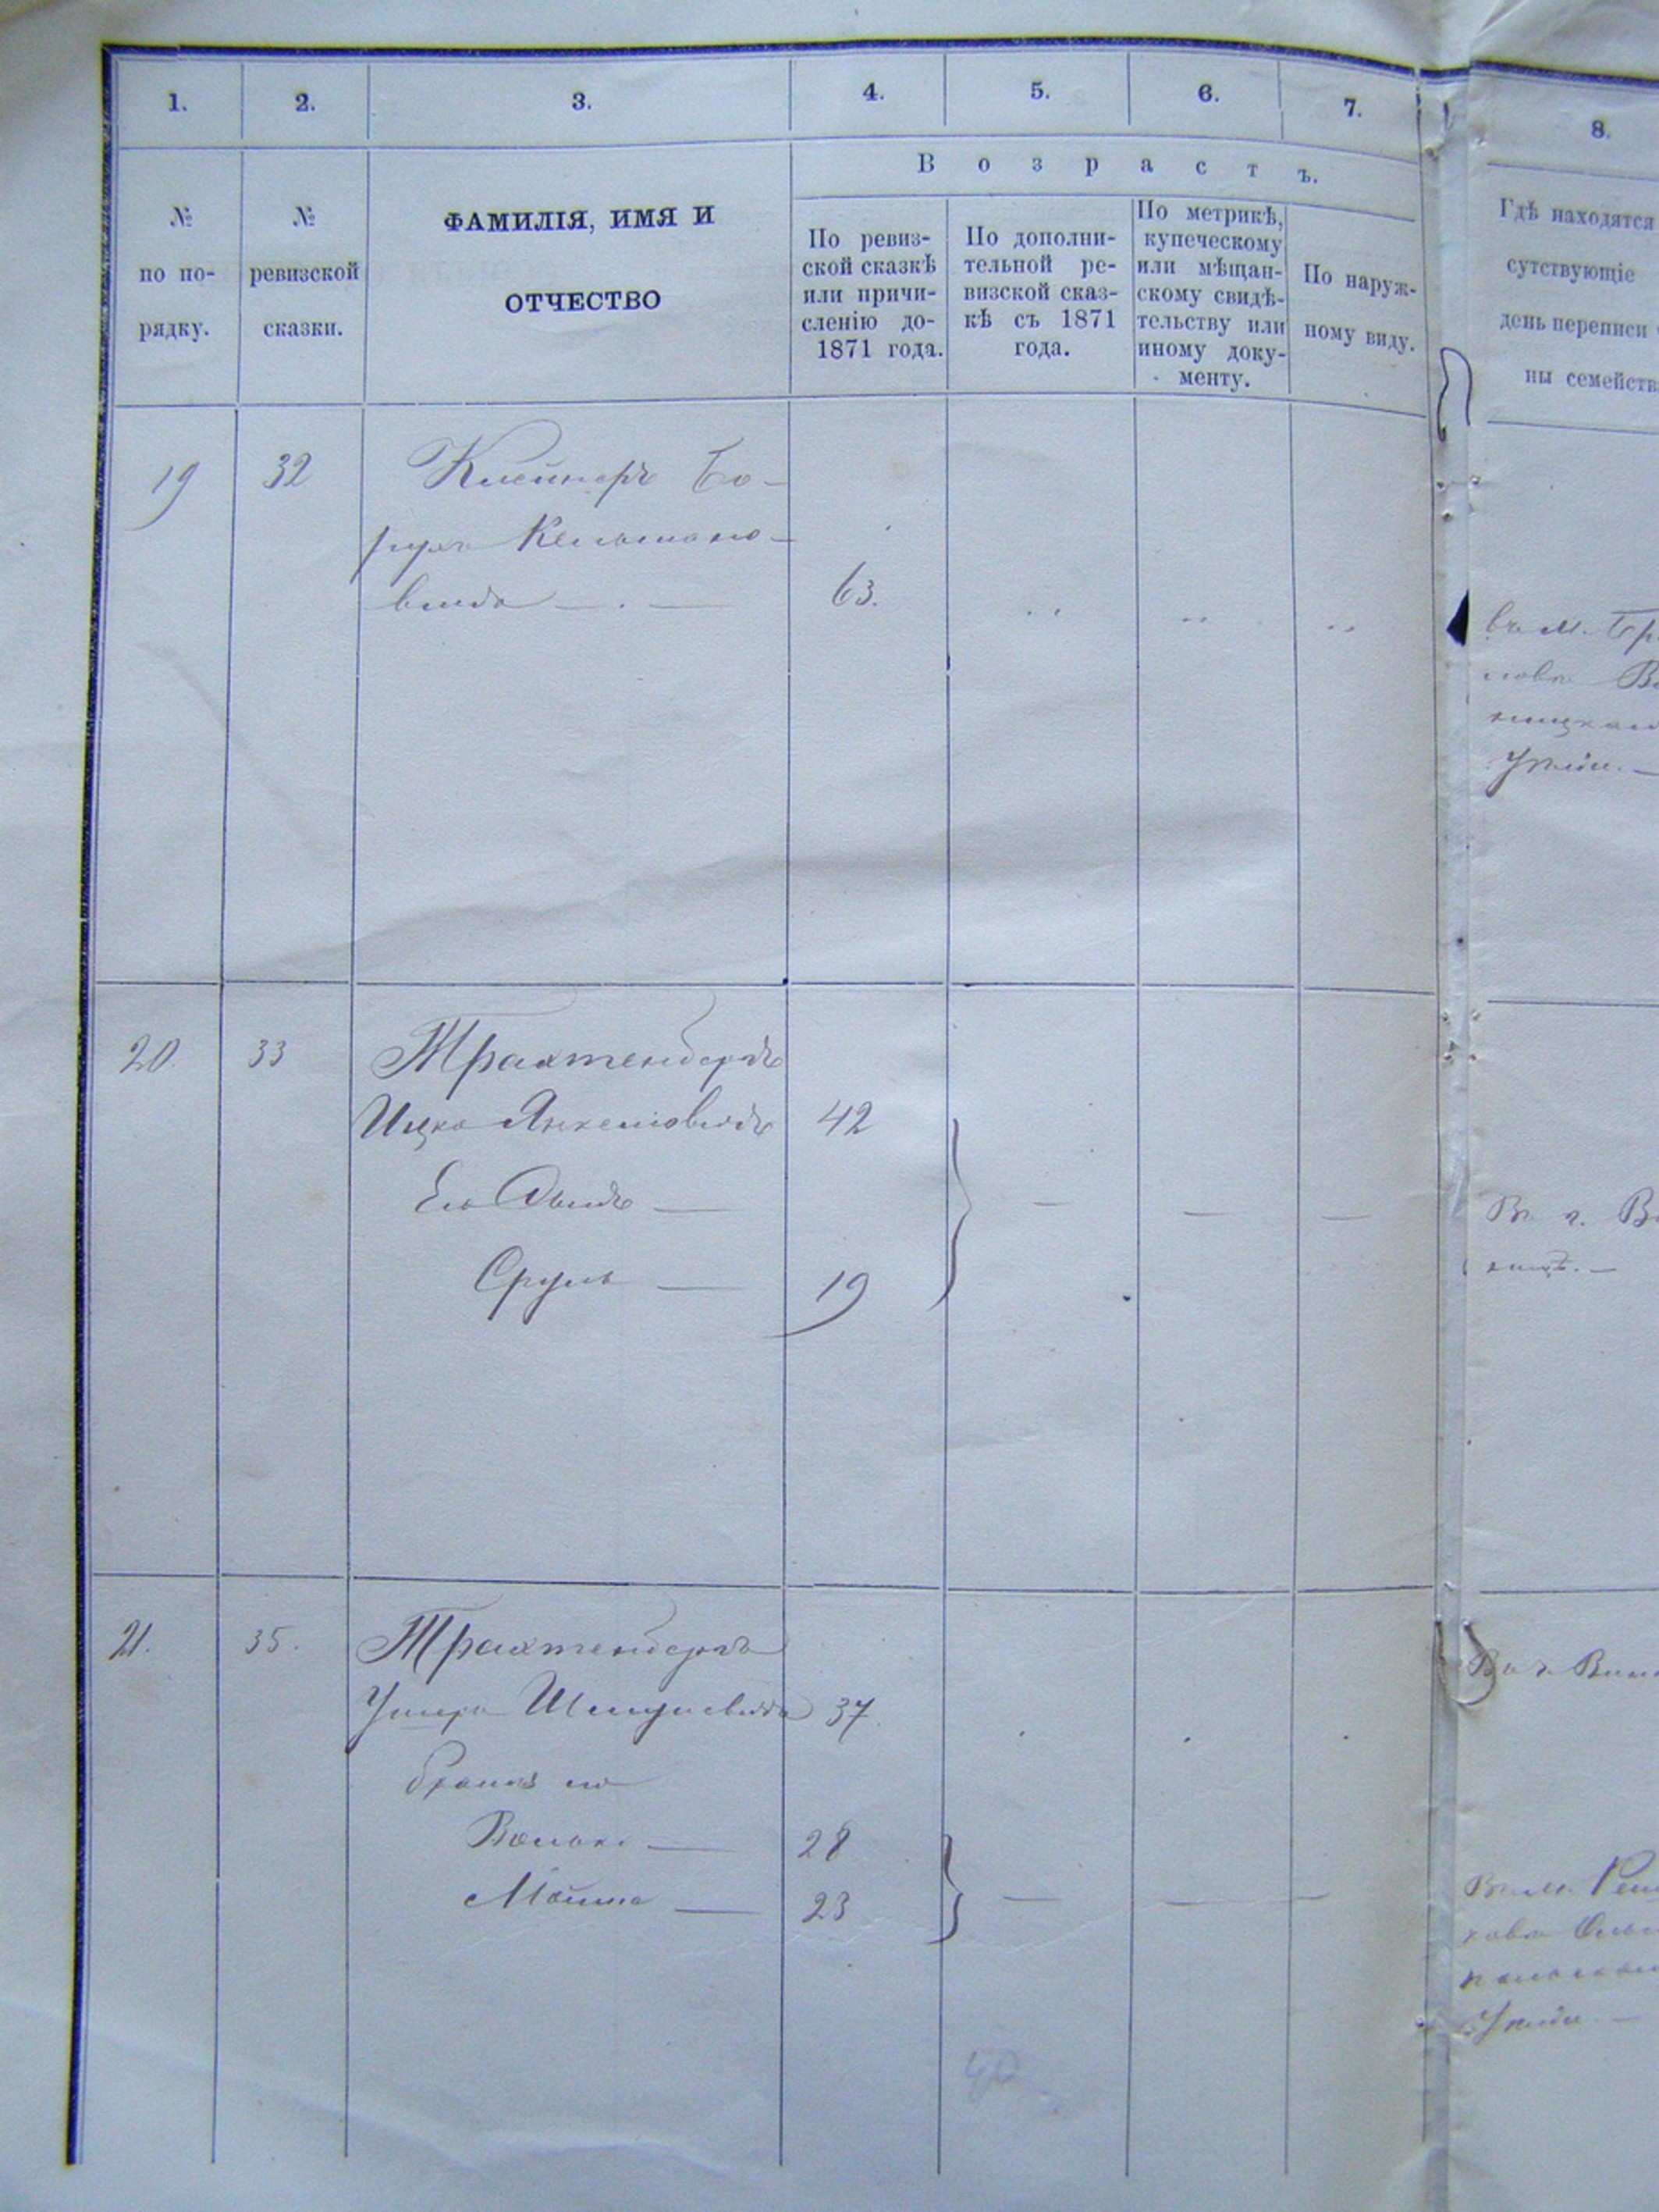 1. 2. 3. 4. 5. 6. 7. 8.
В о з р а с т ъ.
№
по по-
рядку.
№
ревизской
сказки.
ФАМИЛІЯ, ИМЯ И
ОТЧЕСТВО
По ревиз-
ской сказкѣ
или причи-
сленію до-
1871 года.
По дополни-
тельной ре-
визской сказ-
кѣ съ 1871
года.
По метрикѣ,
купеческому
или мѣщан-
скому свидѣ-
тельству или
иному доку-
менту.
По наруж-
ному виду.
Гдѣ находятся
сутствующіе
день переписи
ны семейств
19 32 Клейнеръ Бо-
рухъ Кельмано-
вичъ 63.
въ м. Бр
ловѣ В
ницкаго
Уѣзда.
20. 33 Трахтенбергъ
Ицко Янкелiовичъ 42
Его Сынъ
Сруль 19
Въ г. В
ницѣ.
21. 35. Трахтенбергъ
Ушеръ Шмулевичъ 37
братья его
Волько 28
Мошко 23
Въ г. Винн
Въ м.
Уѣзда
40